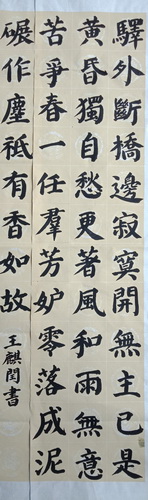 驛外斷橋邊寂寞開無主已是
黃昏獨自愁更著風和雨無意
苦爭春一任羣芳妒零落成泥
碾作塵祗有香如故
王麒閏書